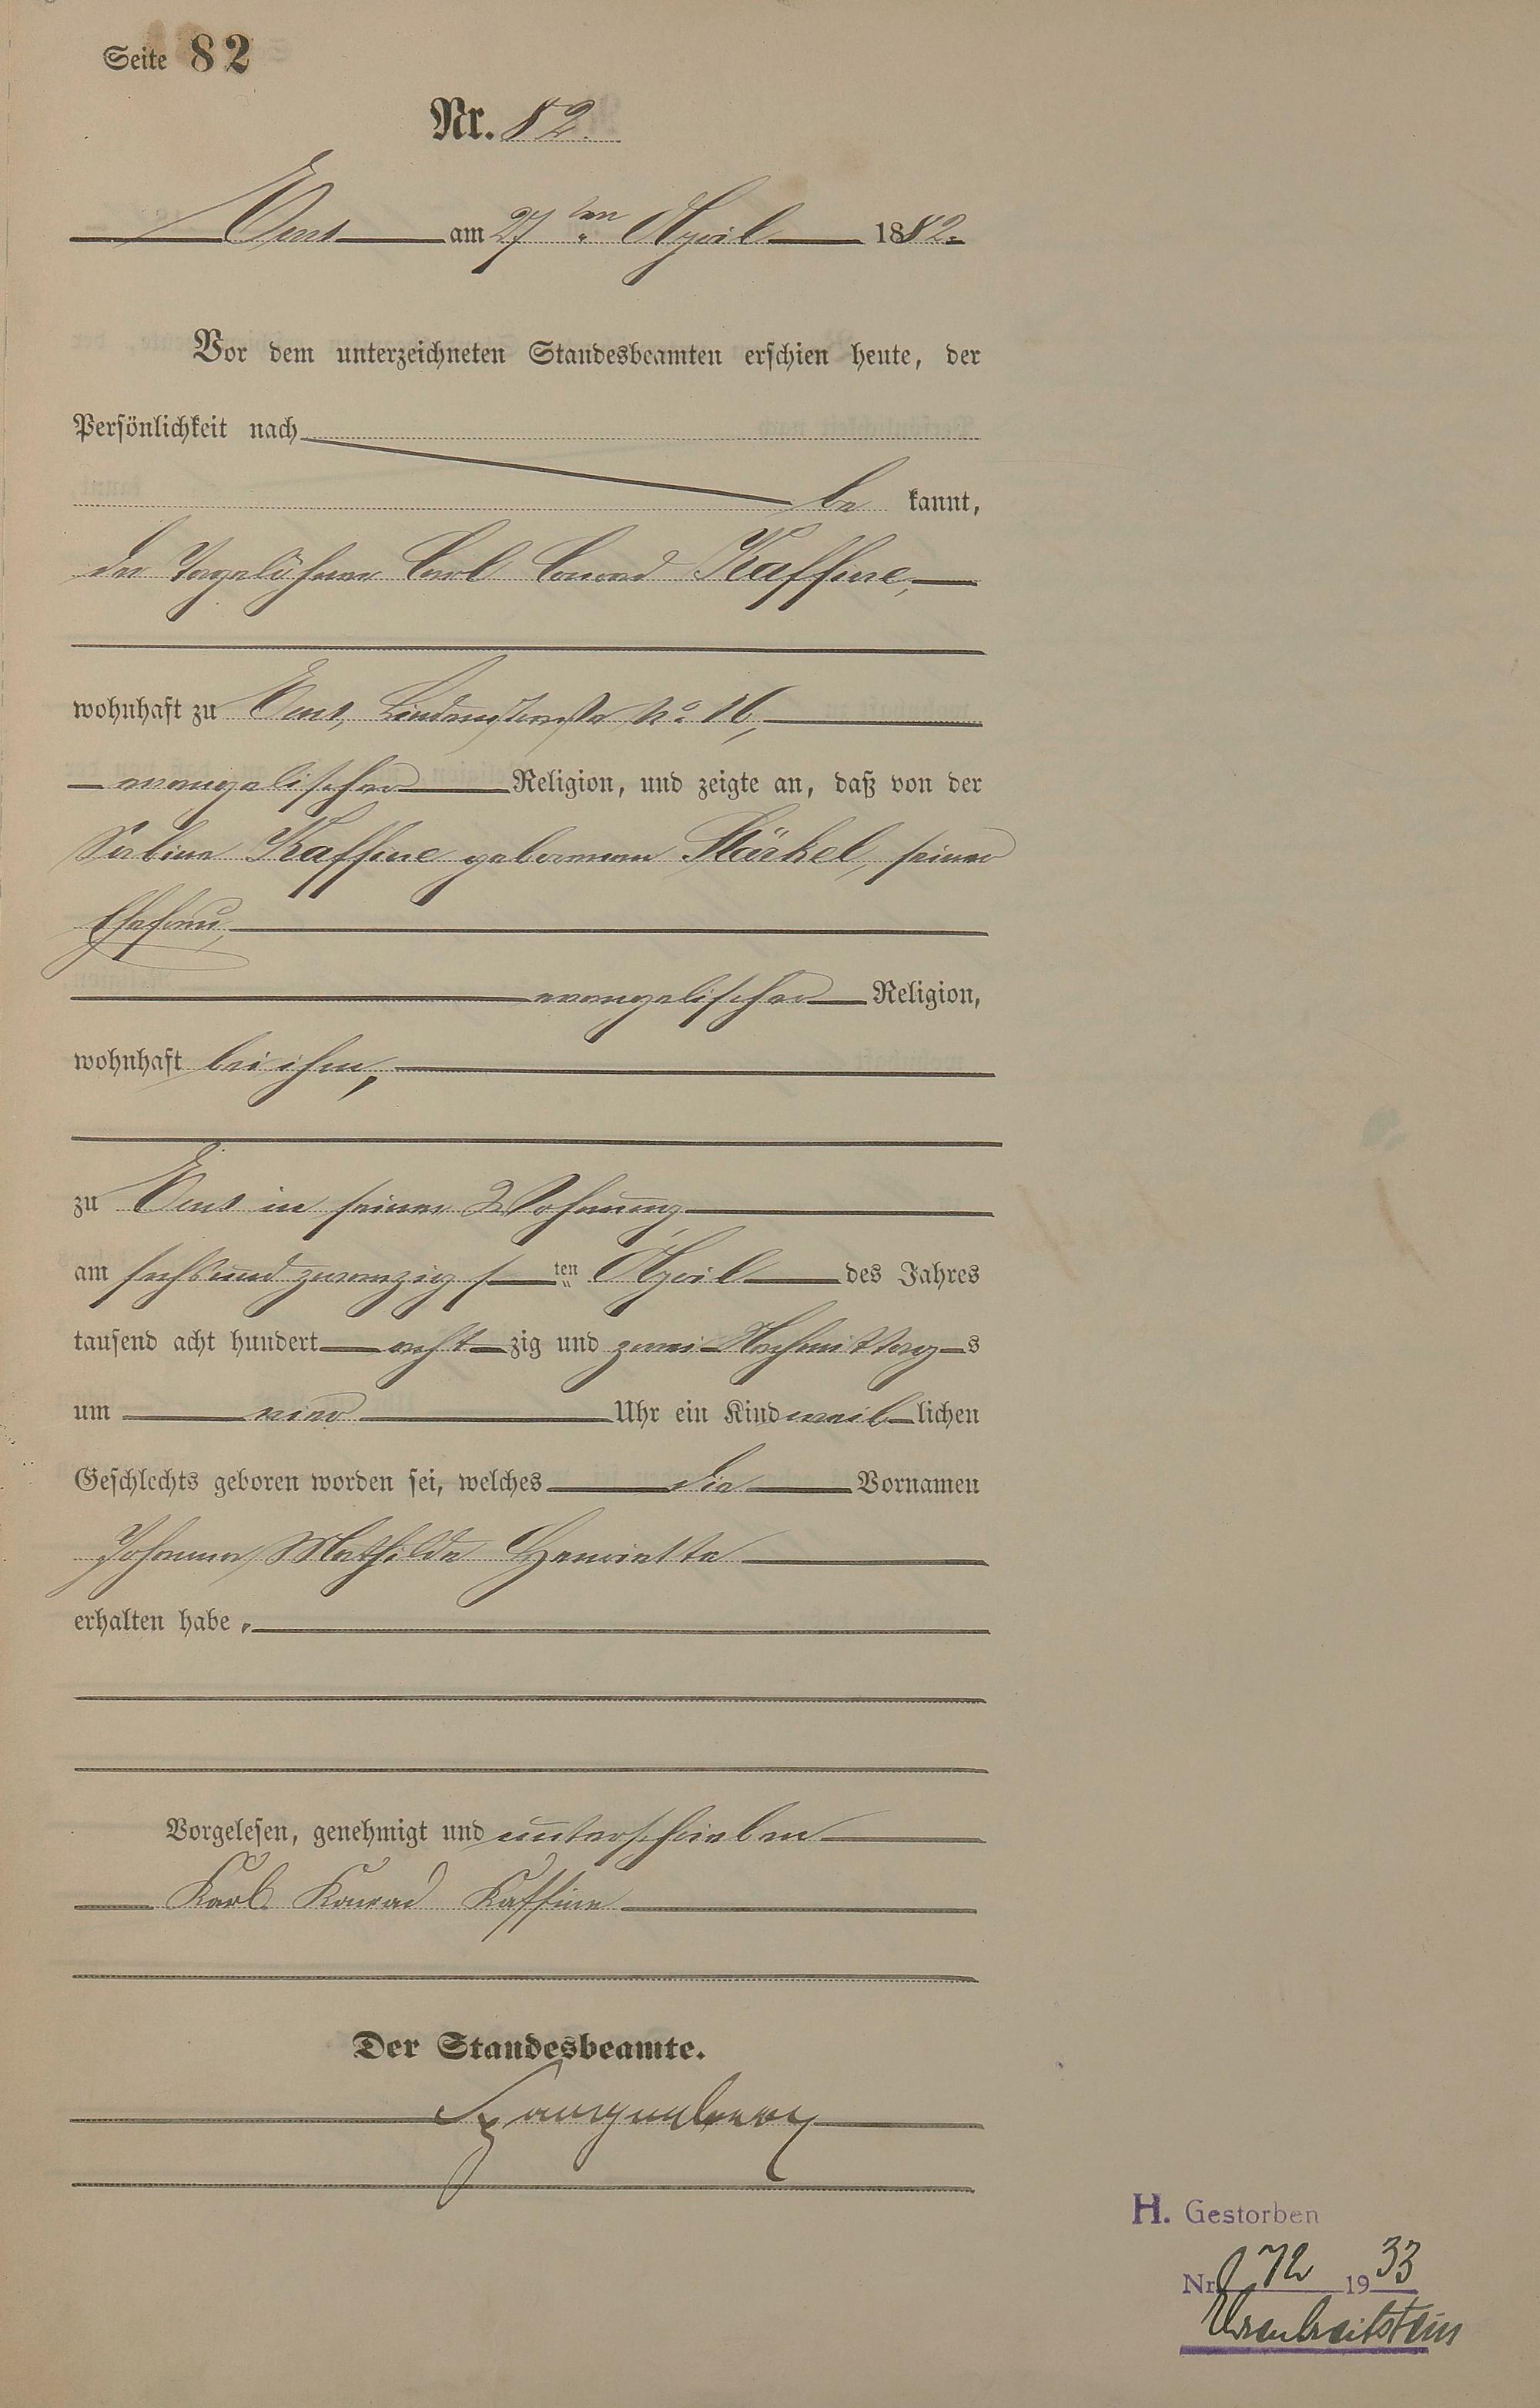 Seite 82
Nr. 82.
Ems am 27ten April 1882.
Vor dem unterzeichneten Standesbeamten erschien heute, der
Persönlichkeit nach
be kannt,
der Tagelöhner Carl Conrad Kaffine,
wohnhaft zu Ems, Lindenstraße No. 16,
evangelischer Religion, und zeigte an, daß von der
Sabine Kaffine geborenen Stärkel, seiner
Ehefrau,
evangelischer Religion,
wohnhaft bei ihm,
zu Ems in seiner Wohnung
am sechsundzwanzigs ten April des Jahres
tausend acht hundert acht zig und zwei Nachmittag s
um vier Uhr ein Kind weib lichen
Geschlechts geboren worden sei, welches die Vornamen
Johanna Mathilde Henriette
erhalten habe.
Vorgelesen, genehmigt und unterschrieben
Karl Konrad Kaffine
Der Standesbeamte.
H. Gestorben
Nr. 72 1933
Ehrenbreitstein